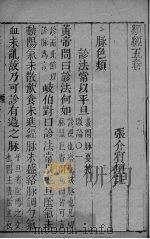 類經五卷
張介賓類註
脉色類
診法常以平旦 素問脉要精微論○
黃帝問曰診法何如
岐伯對曰診法常以平旦陰氣未
動陽氣未散飲食未進經脉未盛絡脉調勻氣
血未亂故乃可診有過之脉